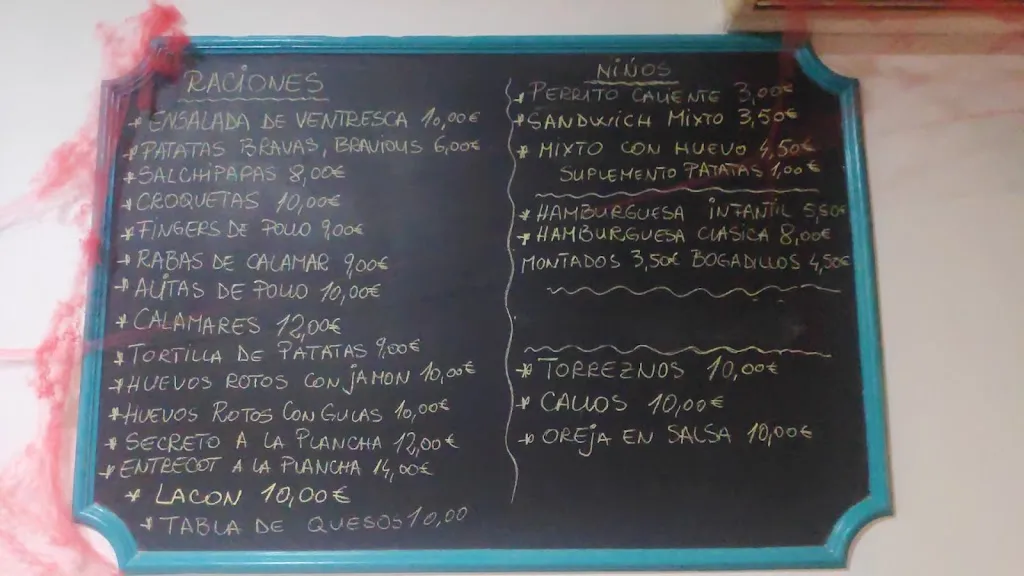 RACIONES
* ENSALADA DE VENTRESCA 10,00€
* PATATAS BRAVAS, BRAVIOLIS 6,00€
* SALCHIPAPAS 8,00€
* CROQUETAS 10,00€
* FINGERS DE POLLO 9,00€
* RABAS DE CALAMAR 9,00€
* ALITAS DE POLLO 10,00€
* CALAMARES 12,00€
* TORTILLA DE PATATAS 9,00€
* HUEVOS ROTOS CON JAMON 10,00€
* HUEVOS ROTOS CON GULAS 10,00€
* SECRETO A LA PLANCHA 12,00€
* ENTRECOT A LA PLANCHA 14,00€
* LACON 10,00€
* TABLA DE QUESOS 10,00
NIÑOS
* PERRITO CALIENTE 3,00€
* SANDWICH MIXTO 3,50€
* MIXTO CON HUEVO 4,50€
SUPLEMENTO PATATAS 1,00€
* HAMBURGUESA INFANTIL 5,50€
* HAMBURGUESA CLASICA 8,00€
MONTADOS 3,50€ BOCADILLOS 4,50€
* TORREZNOS 10,00€
* CALLOS 10,00€
* OREJA EN SALSA 10,00€